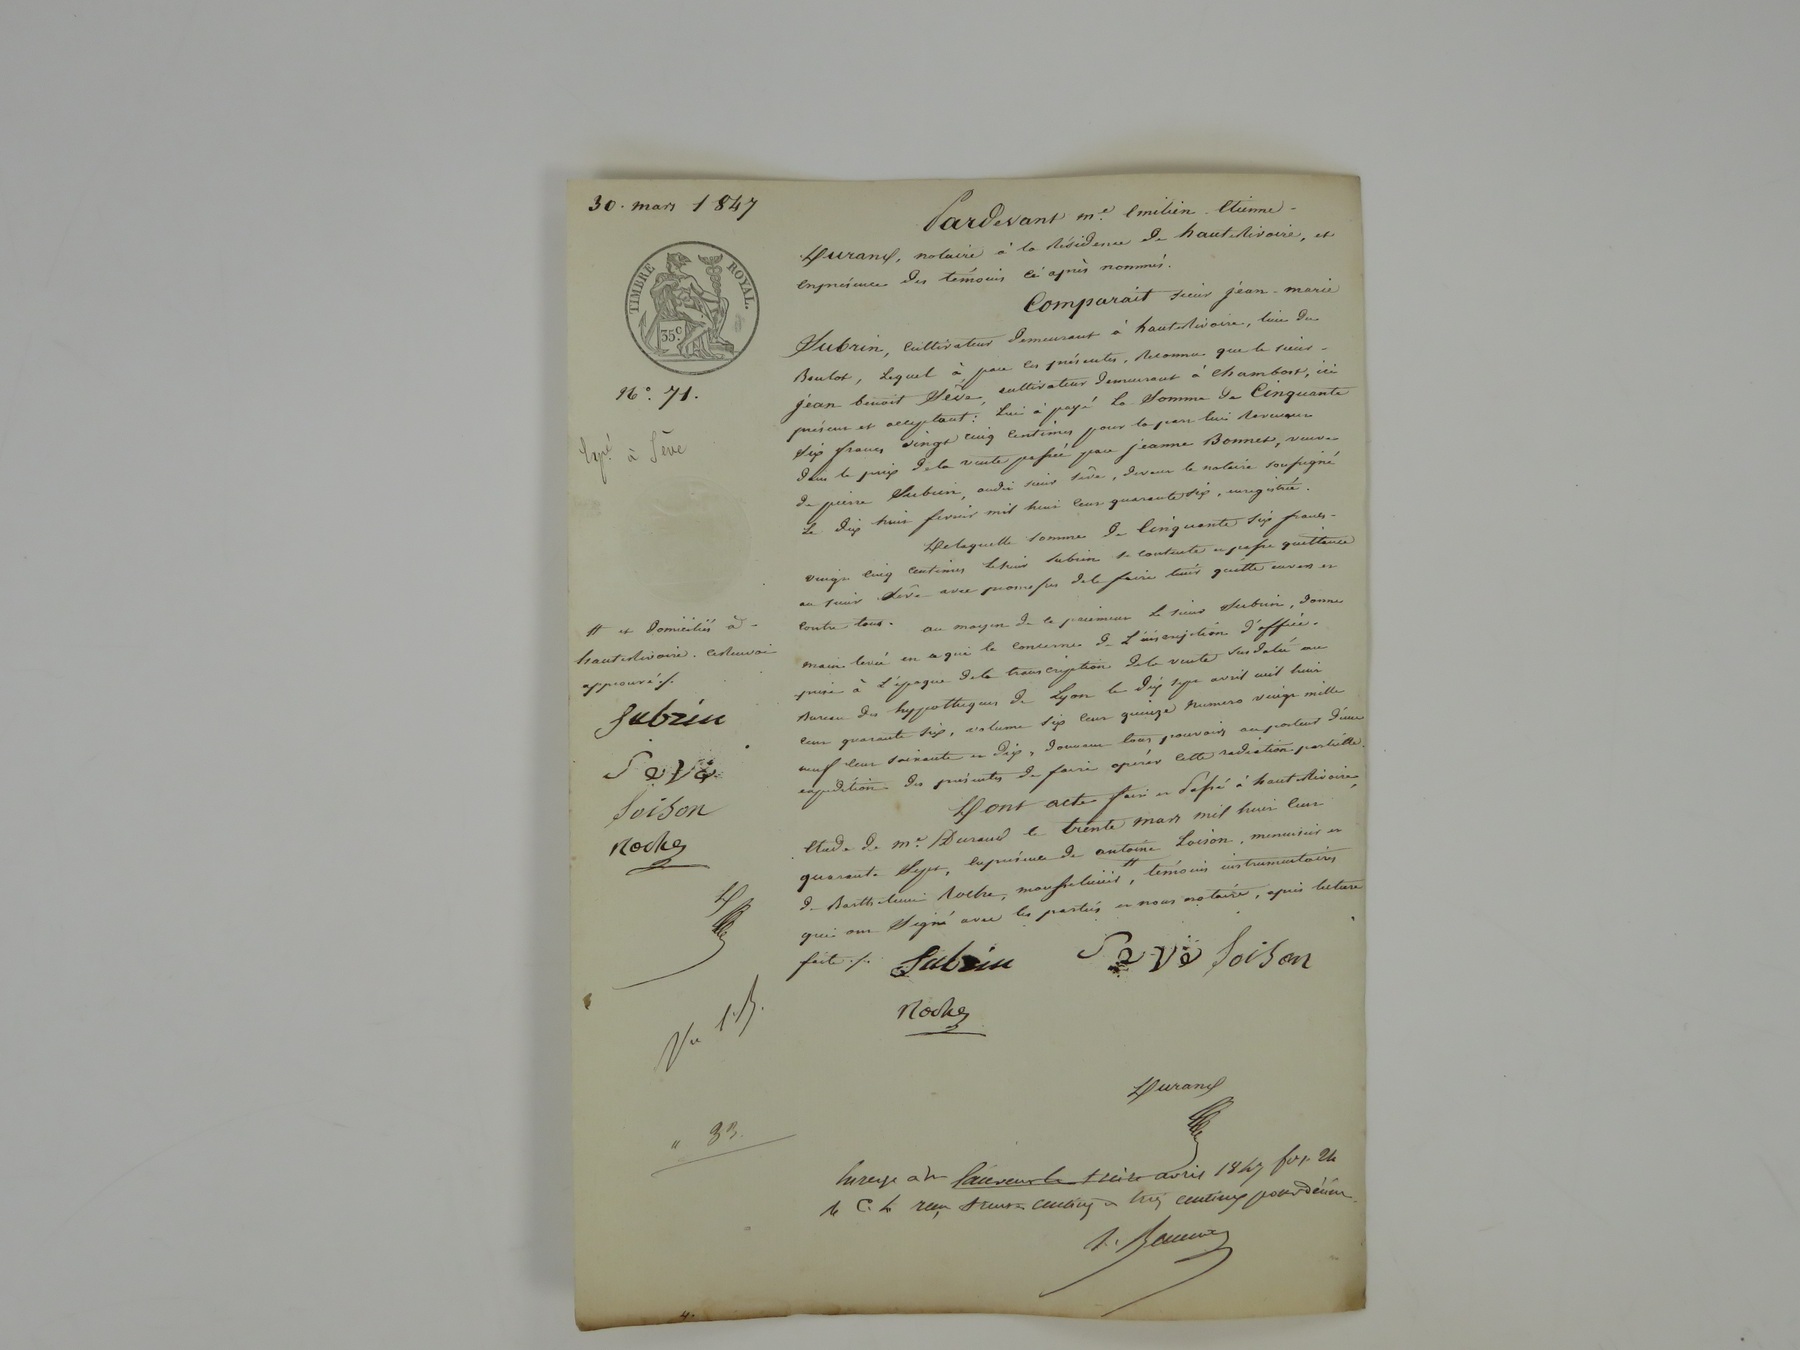 30. mars 1847
TIMBRE ROYAL.
35 c.
N.° 71.
Exp.é à Sêve
# et domiciliés à
haute Rivoire. ce Renvoi
approuvé ./.
Subrin
Sève
Loison
Roche
Vu
" 33.
Pardevant m.e Emilien - Etienne -
Durand, notaire à la Résidence de hauteRivoire, et
enprésence des témoins ci après nommés.
Comparait sieur jean-marie
Subrin, cultivateur demeurant à hauteRivoire, lieu du
Boulot, Lequel à par ces présentes, Reconnu que le sieur -
jean benoit Sêve, cultivateur demeurant à Chambost, ici
présent et acceptant: Lui à payé La Somme de Cinquante
Six francs vingt cinq centimes pour la part lui Revenant
dans le prix de la vente passée par jeanne Bonnet, veuve
de pierre Subrin, audit sieur Sêve, devant le notaire soussigné
Le dix huit fevrier mil huit cent quarante six, enregistrée.
Delaquelle somme de Cinquante six francs -
vingt cinq centimes lesieur Subrin se contente et passe quittance
au sieur Sêve avec promesse de le faire tenir quitte envers et
contre tous. au moyen de ce paiement le sieur Subrin, donne
main levée en ce qui le concerne de L'inscription d'office.
prise à L'époque dela transcription dela vente Susdatée au
Bureau des hypothèques de Lyon le dix sept avril mil huit
cent quarante six, volume six cent quinze Numero vingt mille
neuf cent soixante et dix, donnant tous pouvoirs au porteur d'une
expédition des présentes de faire opérer cette radiation partielle.
Dont acte fait et Passé à haute Rivoire
Etude de m.e Durand le trente mars mil huit cent
quarante Sept, enprésence de antoine Loison, menuisier et
de Barthelemi Roche, #, témoins instrumentaires
qui ont Signé avec les parties et nous notaire, après lecture
faite ./. Subrin Sève Loison
Roche
Durand
le treize avril 1847 f.°
reçu trente centimes et trois centimes pour décime